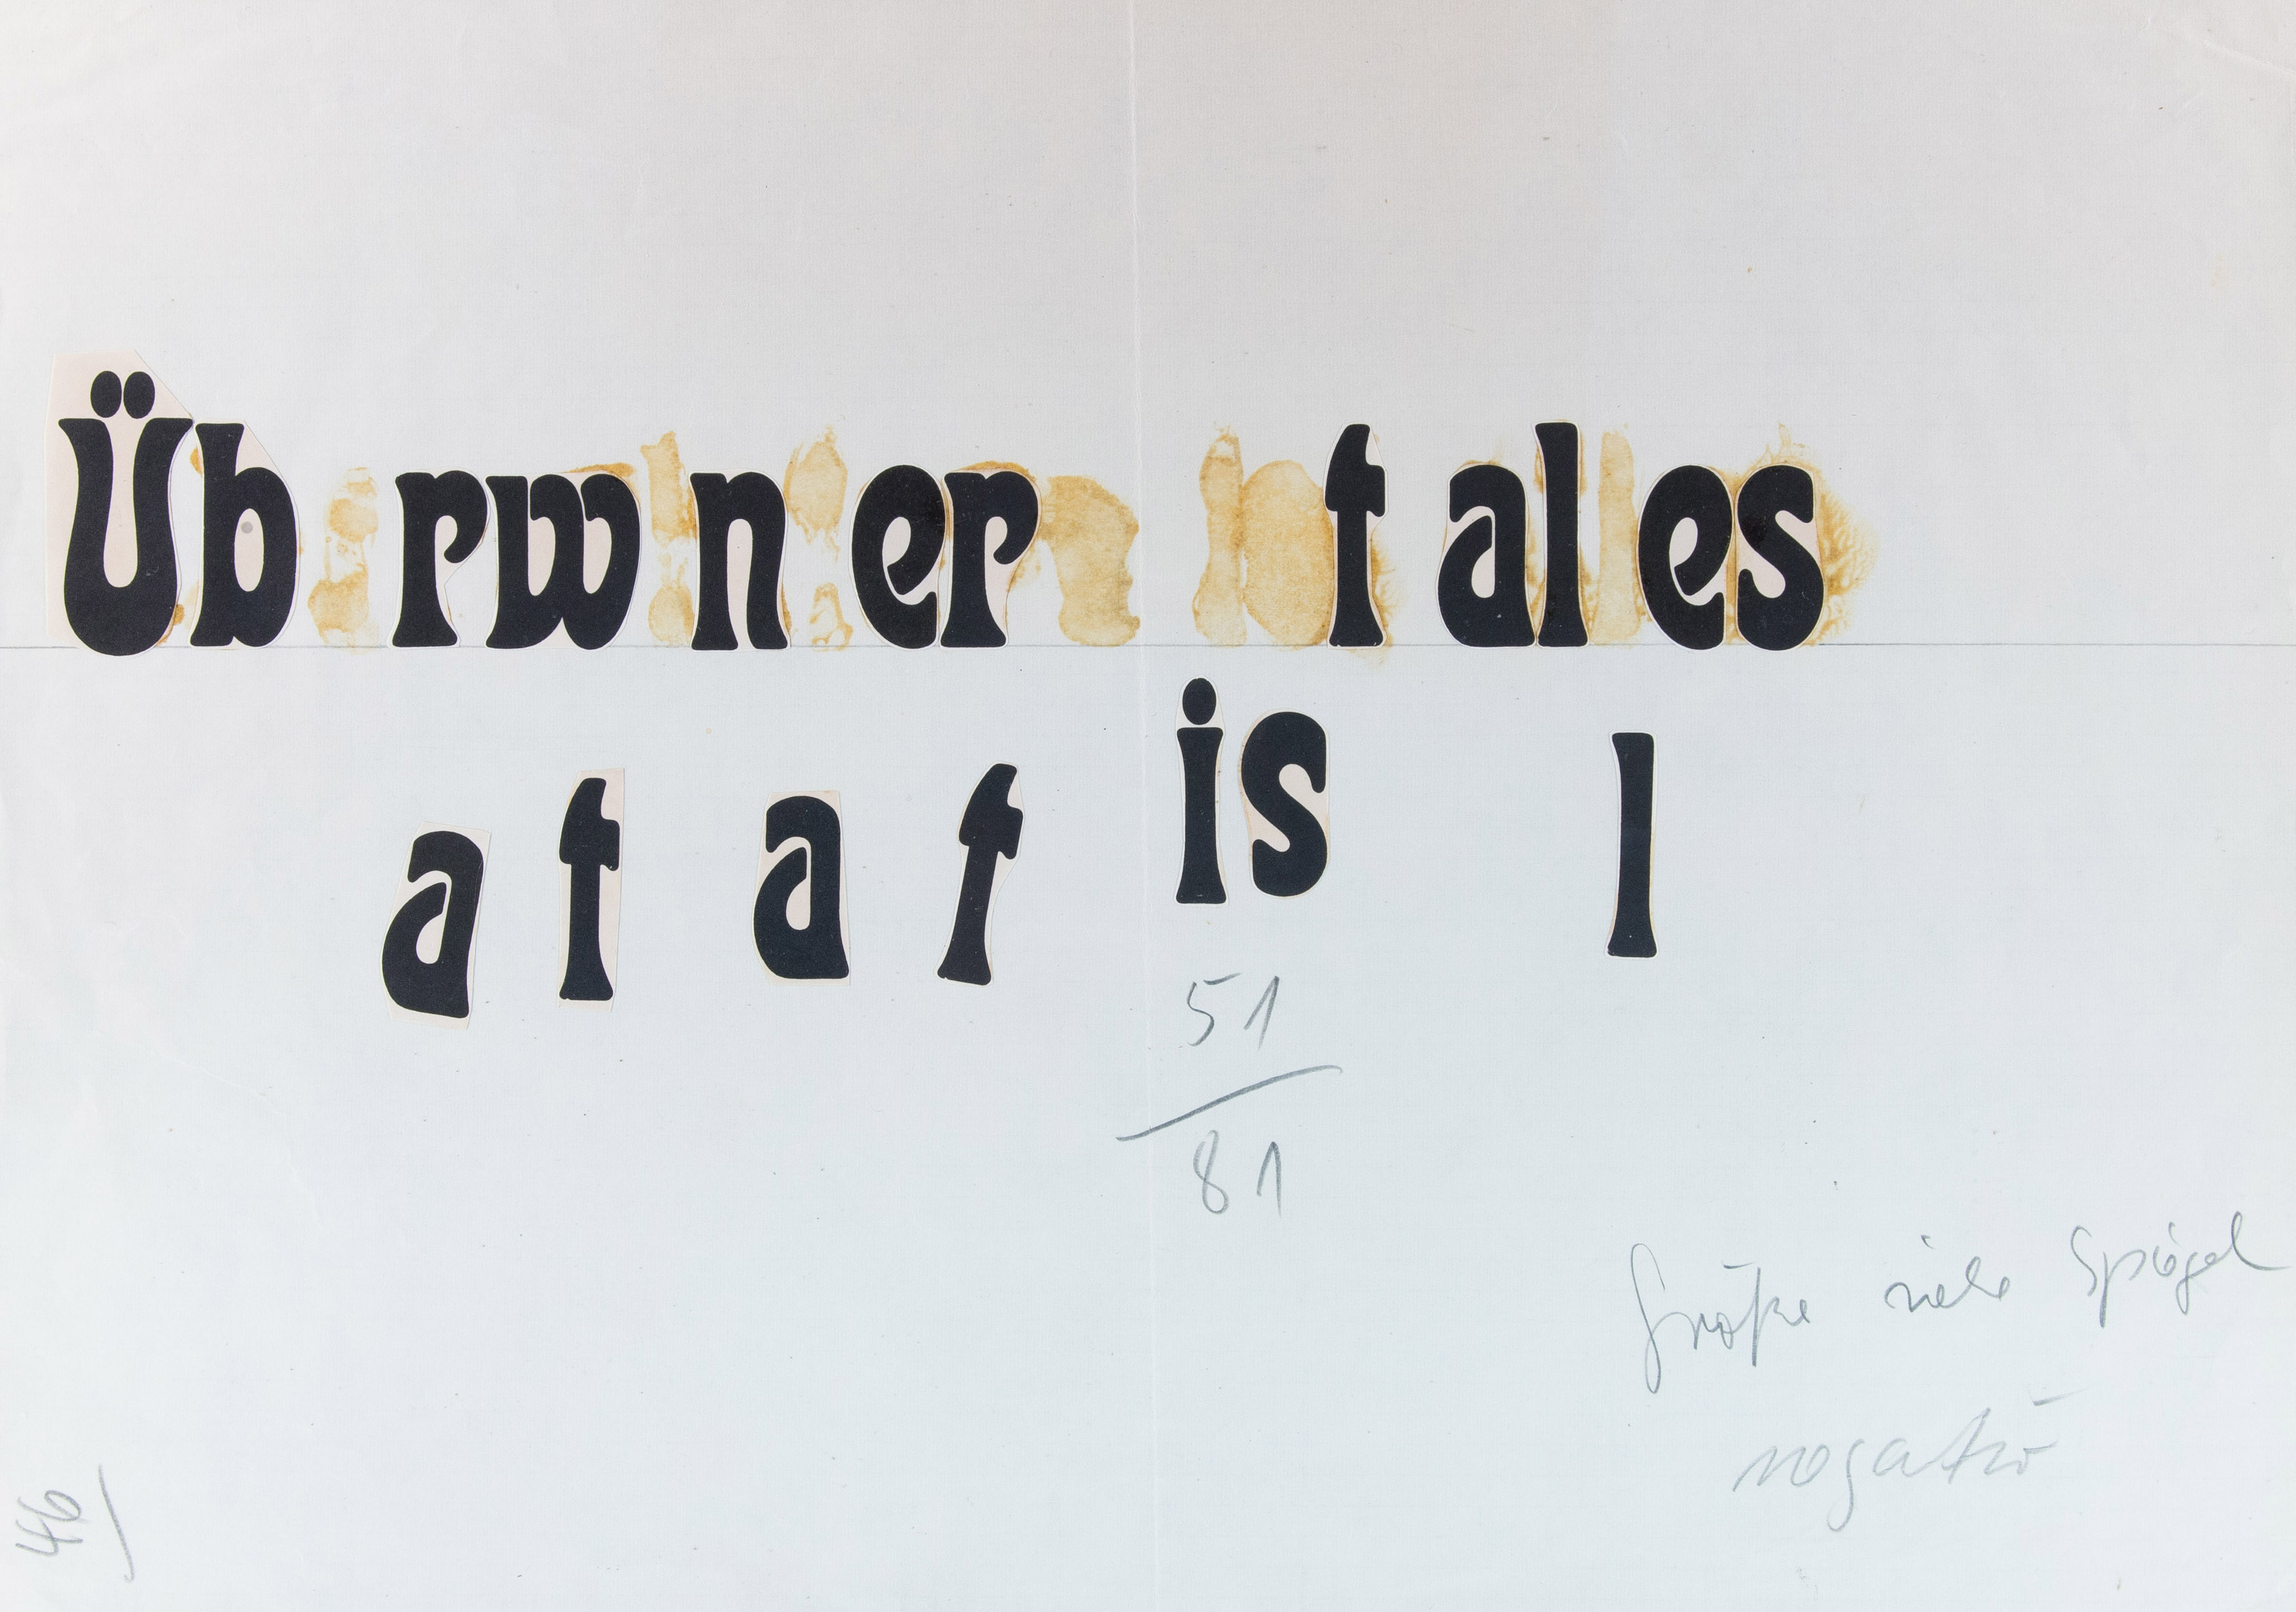 Üb rwn er t ales
a t a t is l
51
81
Größe siehe Spiegel
negativ
46